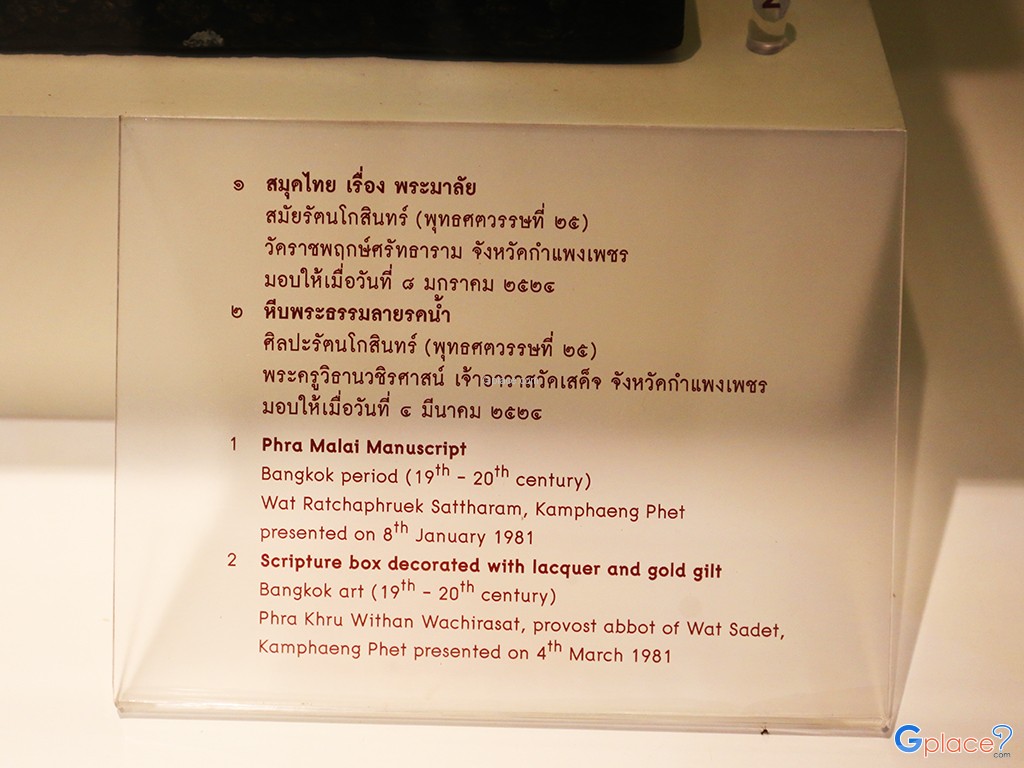 2
๑ สมุดไทย เรื่อง พระมาลัย
สมัยรัตนโกสินทร์ (พุทธศตวรรษที่ ๒๕)
วัดราชพฤกษ์ศรัทธาราม จังหวัดกำแพงเพชร
มอบให้เมื่อวันที่ ๘ มกราคม ๒๕๒๔
๒ หีบพระธรรมลายรดน้ำ
ศิลปะรัตนโกสินทร์ (พุทธศตวรรษที่ ๒๕)
พระครูวิธานวชิรศาสน์ เจ้าอาวาสวัดเสด็จ จังหวัดกำแพงเพชร
มอบให้เมื่อวันที่ ๔ มีนาคม ๒๕๒๔
1 Phra Malai Manuscript
Bangkok period (19th - 20th century)
Wat Ratchaphruek Sattharam, Kamphaeng Phet
presented on 8th January 1981
2 Scripture box decorated with lacquer and gold gilt
Bangkok art (19th - 20th century)
Phra Khru Withan Wachirasat, provost abbot of Wat Sadet,
Kamphaeng Phet presented on 4th March 1981
Gplace?.com